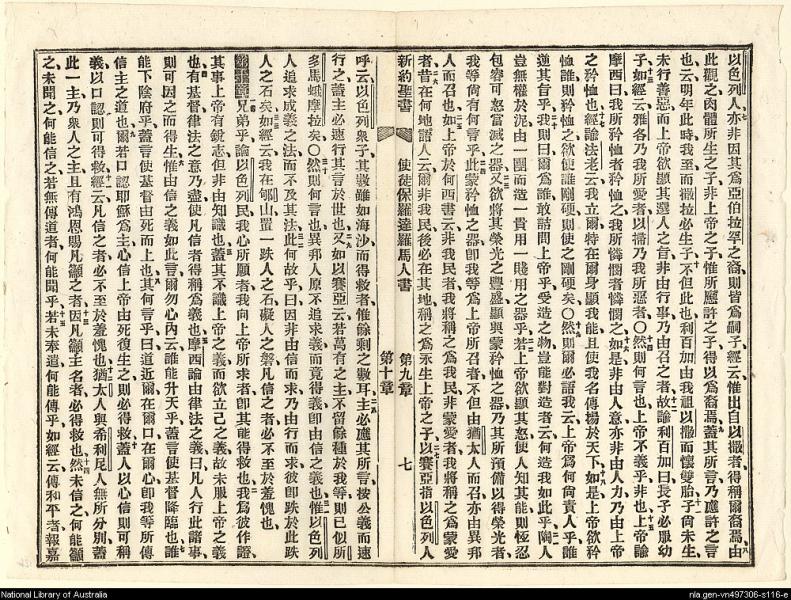 以色列人亦非因其爲亞伯拉罕之裔則皆爲嗣子經云惟出自以撒者得稱爾裔焉由
此觀之肉體所生之子非上帝之子惟所應許之子得以爲裔焉蓋其所言乃應許之言
也云明年此時我至而撒拉必生子不但此也利百加由我祖以撒而懷雙胎子尙未生
未行善惡而上帝欲顯其選人之旨非由行事乃由召之者故諭利百加曰長子必服幼
子如經云雅各乃我所愛者以掃乃我所惡者〇然則何言也上帝不義乎非也上帝諭
摩西曰我所矜恤者矜恤之我所憐憫者憐憫之如是非由人意亦非由人力乃由上帝
之矜恤也經諭法老云我立爾特在爾身顯我能且使我名傳揚於天下如是上帝欲矜
恤誰則矜恤之欲使誰剛硬則使之剛硬矣〇然則爾必語我云上帝爲何尙責人乎誰
逆其旨乎我則曰爾爲誰敢詰問上帝乎受造之物豈能對造者云何造我如此乎陶人
豈無權於泥由一團而造一貴用一賤用之器乎若上帝欲顯其怒使人知其能則恆忍
包容可怒當滅之器又欲將其榮光之豐盛顯與蒙矜恤之器乃其所預備以得榮光者
我等尙有何言乎此蒙矜恤之器卽我等爲上帝所召者不但由猶太人而召亦由異邦
人而召也如上帝於何西書云非我民者我將稱之爲我民非蒙愛者我將稱之爲蒙愛
者昔在何地謂人云爾非我民後必在其地稱之爲永生上帝之子以賽亞指以色列人
新約聖書 使徒保羅達羅馬人書 第九章 第十章 七
呼云以色列衆子其數雖如海沙而得救者惟餘剩之數耳主必應其所言按公義而速
行之蓋主必速行其言於世也又如以賽亞云若萬有之主不留餘種於我等則已似所
多馬蛾摩拉矣〇然則何言也異邦人原不追求義而竟得義卽由信之義也惟以色列
人追求成義之法而不及其法此何故乎曰因非由信而求乃由行而求彼卽跌於此跌
人之石矣如經云我在郇山置一跌人之石礙人之磐凡信之者必不至於羞愧也
兄弟乎論以色列民我心所願者我向上帝所求者卽其能得救也我爲彼作證
其事上帝有銳志但非由知識也蓋其不識上帝之義而欲立己之義故未服上帝之義
也有基督律法之意乃盡使凡信者得稱爲義也摩西論由律法之義曰凡人行此諸事
則可因之而得生惟由信之義如此言爾勿心內云誰能升天乎蓋言使基督降臨也誰
能下陰府乎蓋言使基督由死而上也其何言乎曰道近爾在爾口在爾心卽我等所傳
信主之道也爾若口認耶穌爲主心信上帝由死復生之則必得救蓋人以心信則可稱
義以口認則可得救經云凡信之者必不至於羞愧也猶太人與希利尼人無所分別蓋
此一主乃衆人之主且有鴻恩賜凡籲之者因凡籲主名者必得救也然未信之何能籲
之未聞之何能信之若無傳道者何能聞乎若未奉遣何能傳乎如經云傳和平者報嘉
National Library of Australia
nla.gen-vn497306-s116-e